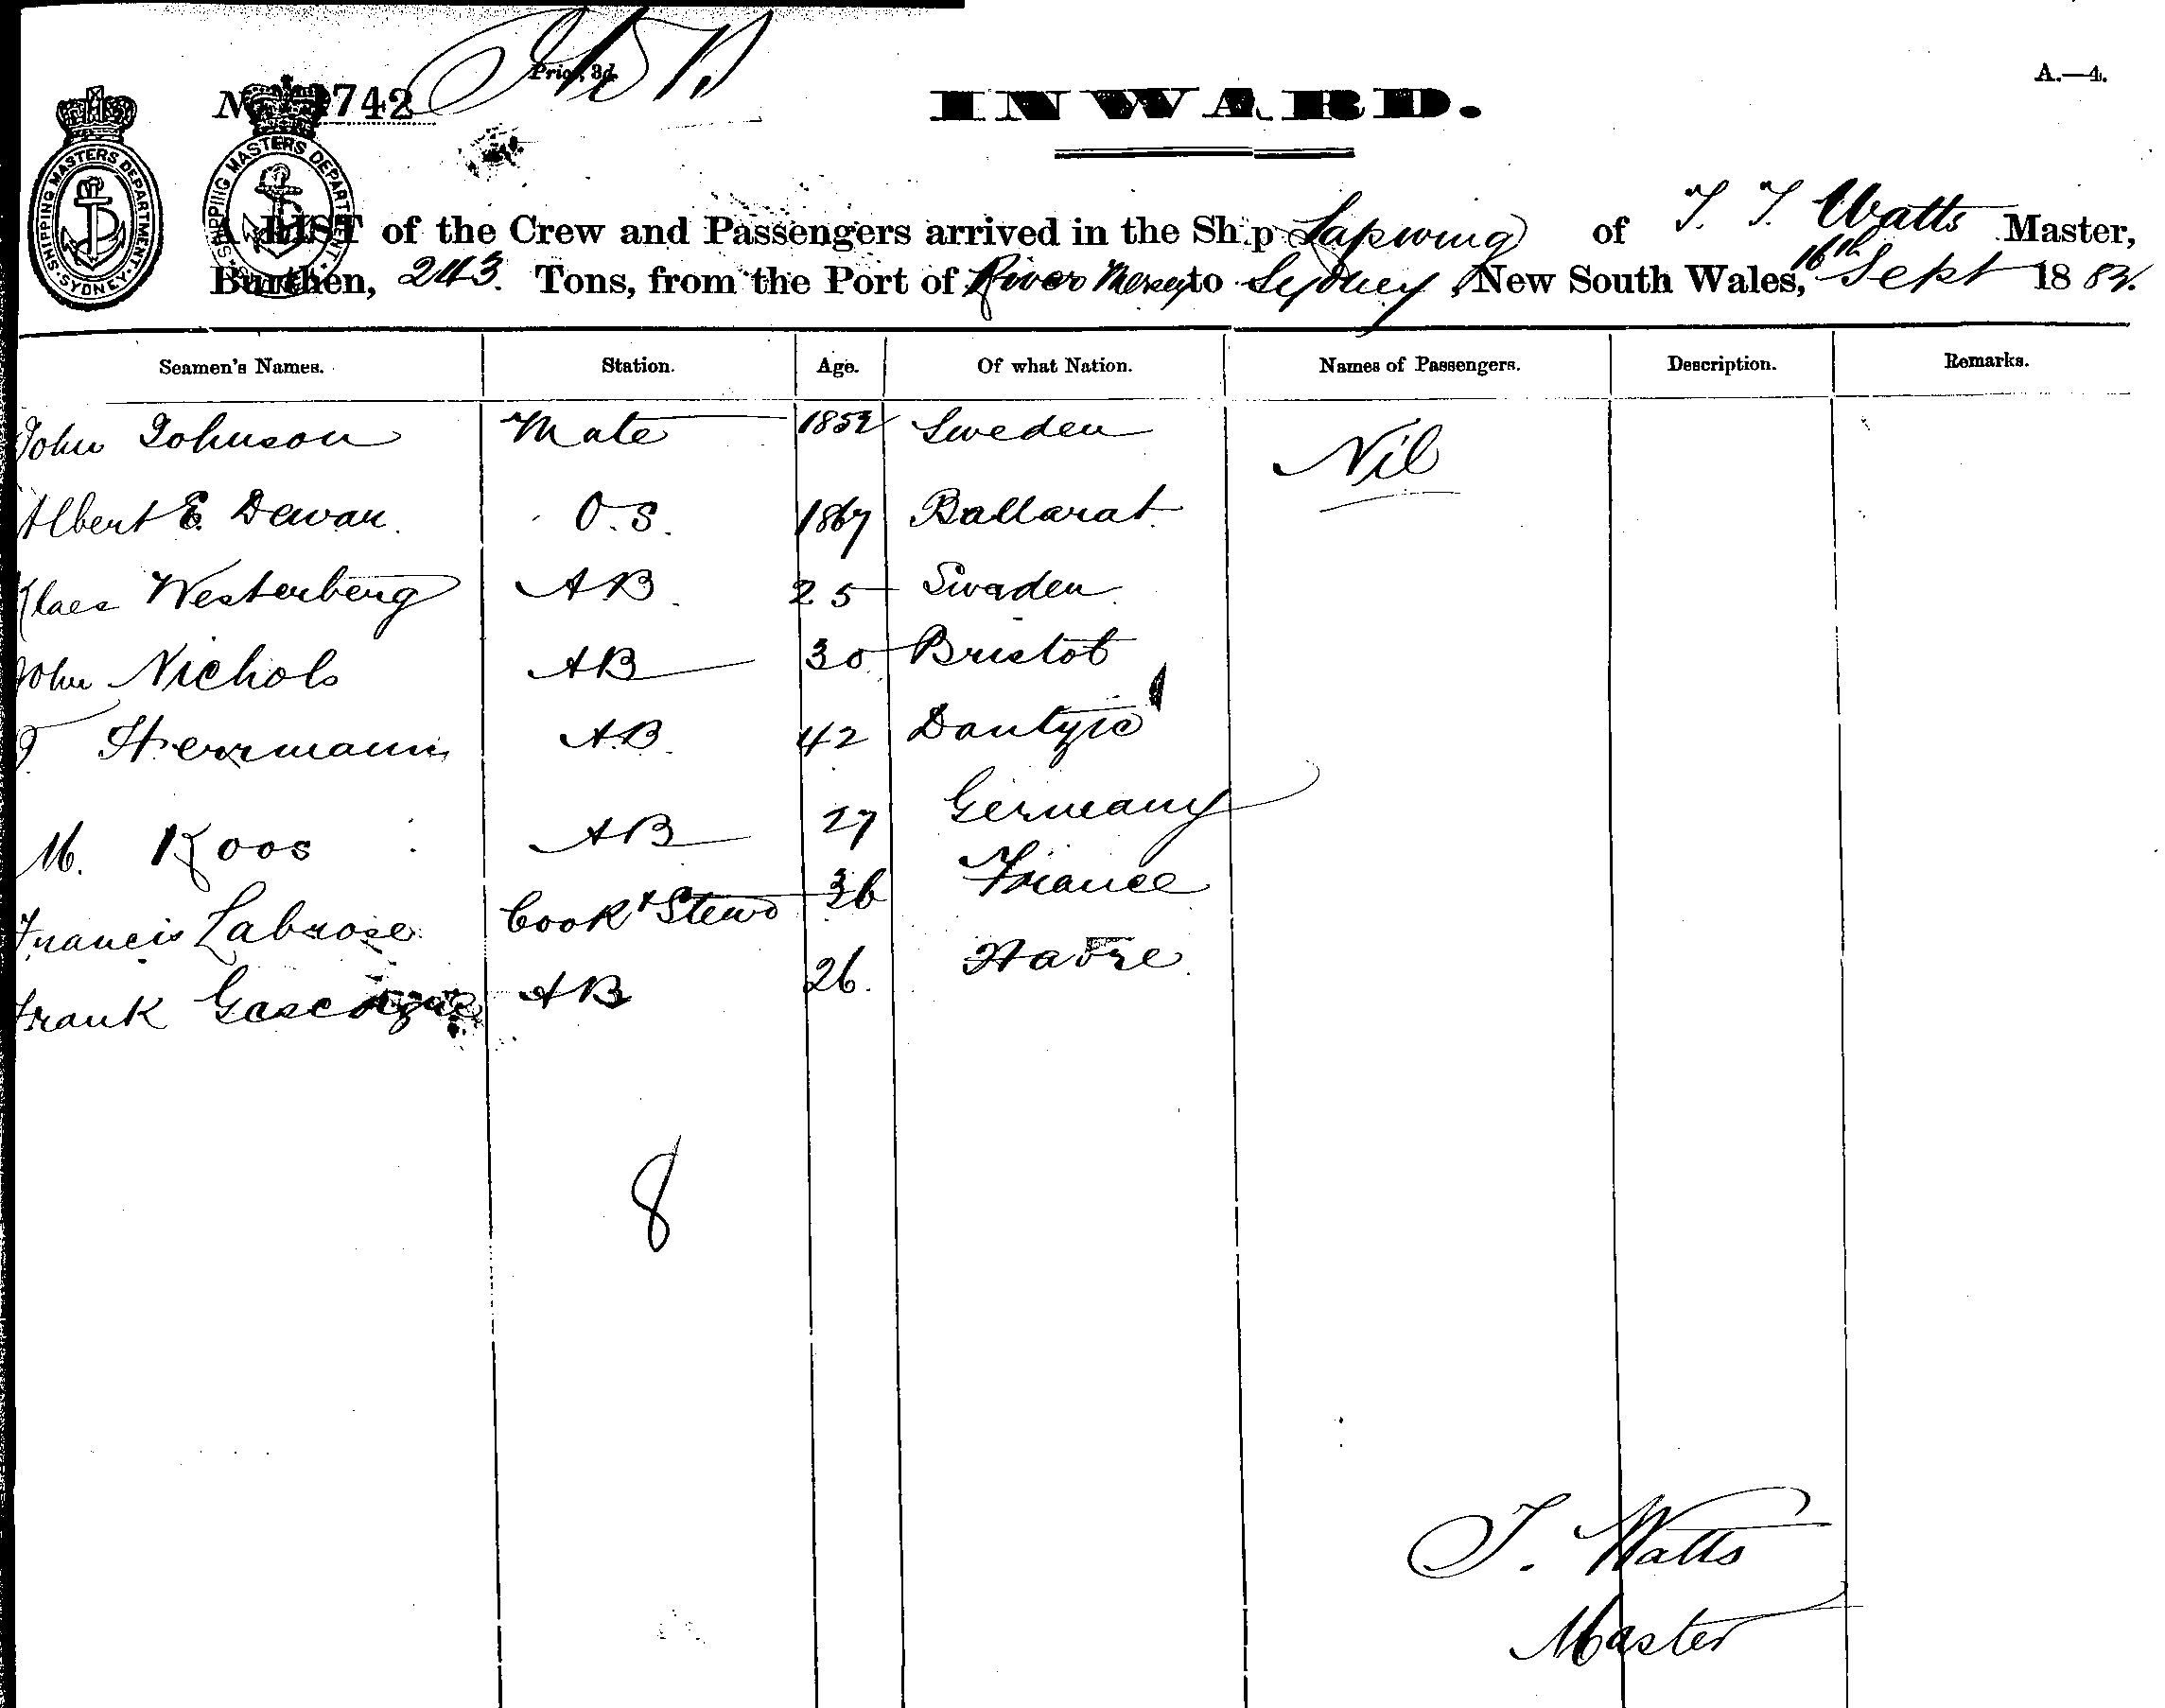 742
Price, 3d.
INWARD.
A.—4.
SHIPPING MASTERS DEPARTMENT · SYDNEY ·
SHIPPING MASTERS DEPARTMENT
A LIST of the Crew and Passengers arrived in the Ship Lapwing of T. T. Watts Master,
Burthen, 243 Tons, from the Port of River Mersey to Sydney, New South Wales, 16th Sept 188
Seamen's Names. Station. Age. Of what Nation. Names of Passengers. Description. Remarks.
John Johnson Mate 1852 Sweden Nil
Albert E. Dewan. O.S. 1867 Ballarat
Klaes Westerberg AB. 25 Sweden
John Nichols AB 30 Bristol
Herrmann A.B. 42 Dantzic
M. Koos AB 27 Germany
Francis Labrose Cook & Stewd 36 France
Frank Gascoigne AB 26. Havre
8
T. Watts
Master